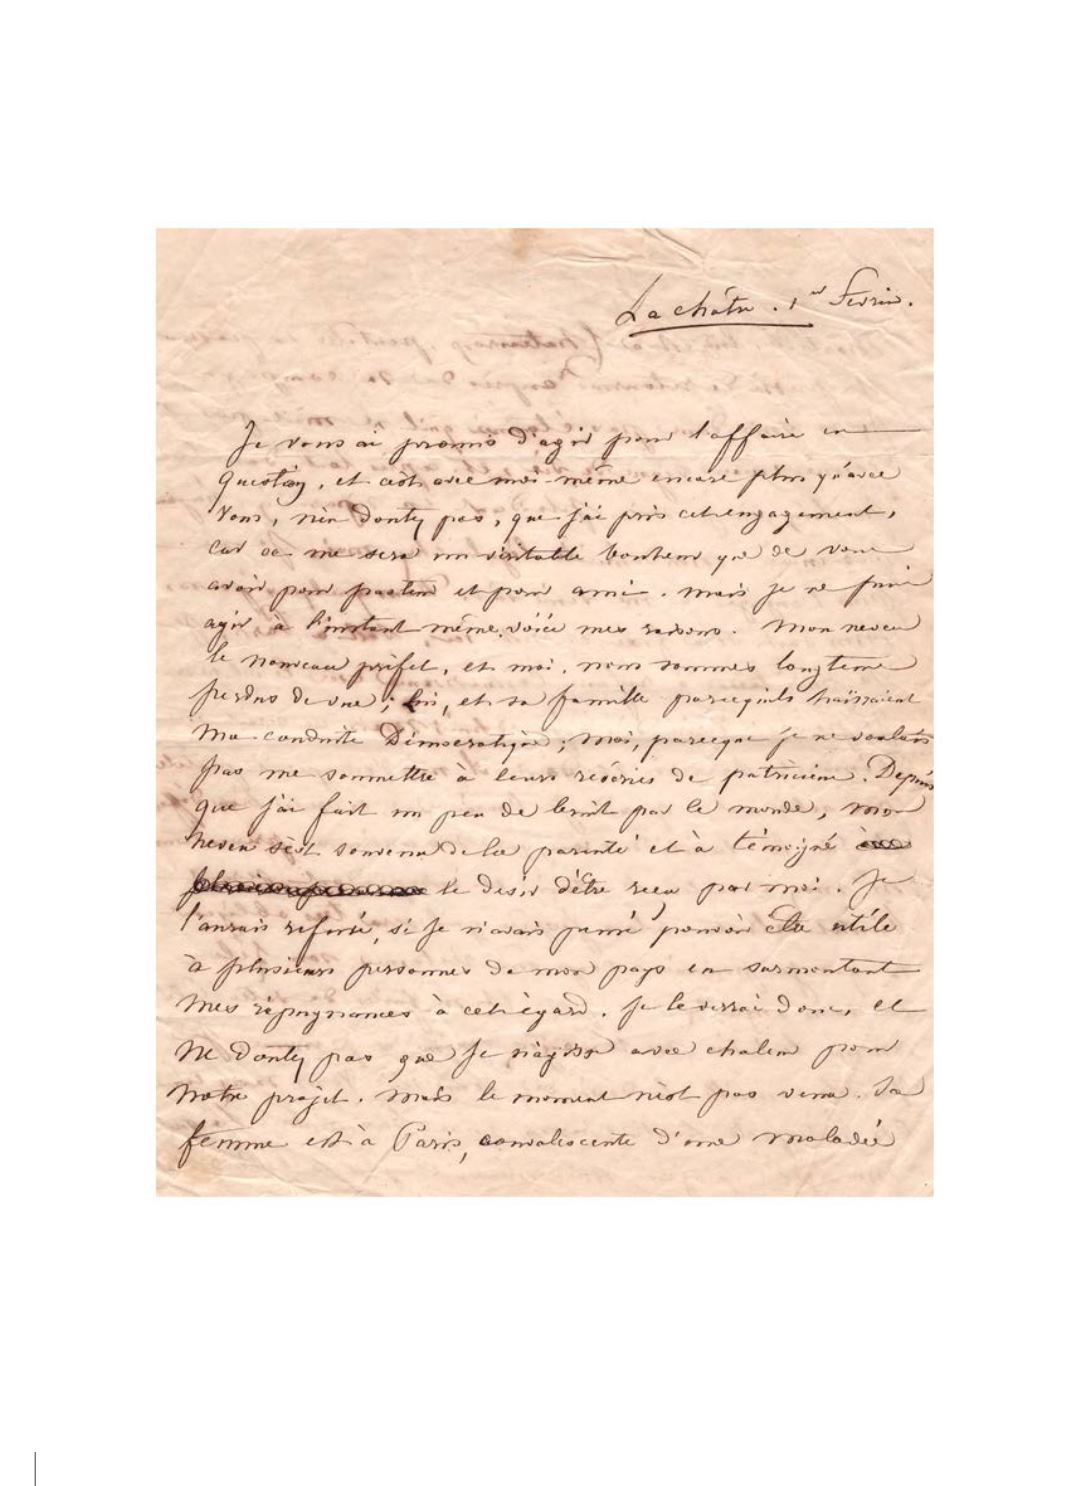 La châtre. 1er Fevrier.
Je vous ai promis d'agir pour l'affaire en
question, et c'est avec moi-même encore plus qu'avec
vous, n'en doutez pas, que j'ai pris cet engagement,
car ce me sera un véritable bonheur que de vous
avoir pour pasteur et pour ami. Mais je ne puis
agir à l'instant même, voici mes raisons. Mon neveu
le nouveau préfet, et moi, nous sommes longtems
perdus de vue; lui, et sa famille parcequ'ils haïssaient
ma conduite Démocratique; moi, parceque je ne voulais
pas me soumettre à leurs rêveries de patriciens. Depuis
que j'ai fait un peu de bruit par le monde, mon
neveu s'est souvenu de la parenté et à témoigné
le desir d'être reçu par moi. Je
l'aurais refusé, si je n'avais pensé pouvoir être utile
à plusieurs personnes de mon pays en surmontant
mes répugnances à cet égard. Je le verrai donc, et
ne doutez pas que je n'agisse avec chaleur pour
notre projet. Mais le moment n'est pas venu. Sa
femme est à Paris, convalescente d'une maladie